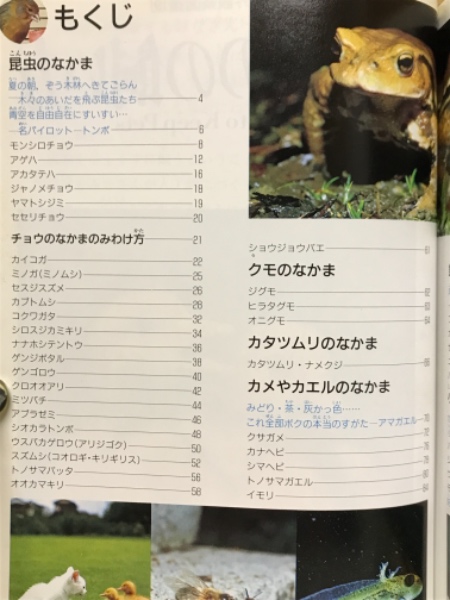 もくじ
昆虫のなかま
夏の朝、ぞう木林へきてごらん
木々のあいだを飛ぶ昆虫たち 4
青空を自由自在にすいすい…
名パイロット―トンボ 6
モンシロチョウ 8
アゲハ 12
アカタテハ 16
ジャノメチョウ 18
ヤマトシジミ 19
セセリチョウ 20
チョウのなかまのみわけ方 21
カイコガ 22
ミノガ(ミノムシ) 25
セスジスズメ 26
カブトムシ 28
コクワガタ 32
シロスジカミキリ 34
ナナホシテントウ 36
ゲンジボタル 38
ゲンゴロウ 40
クロオオアリ 42
ミツバチ 44
アブラゼミ 46
シオカラトンボ 48
ウスバカゲロウ(アリジゴク) 50
スズムシ(コオロギ・キリギリス) 52
トノサマバッタ 56
オオカマキリ 58
ショウジョウバエ 61
クモのなかま
ジグモ 62
ヒラタグモ 63
オニグモ 64
カタツムリのなかま
カタツムリ・ナメクジ
カメやカエルのなかま
みどり・茶・灰かっ色……
これ全部ボクの本当のすがた―アマガエル
クサガメ
カナヘビ
シマヘビ
トノサマガエル
イモリ